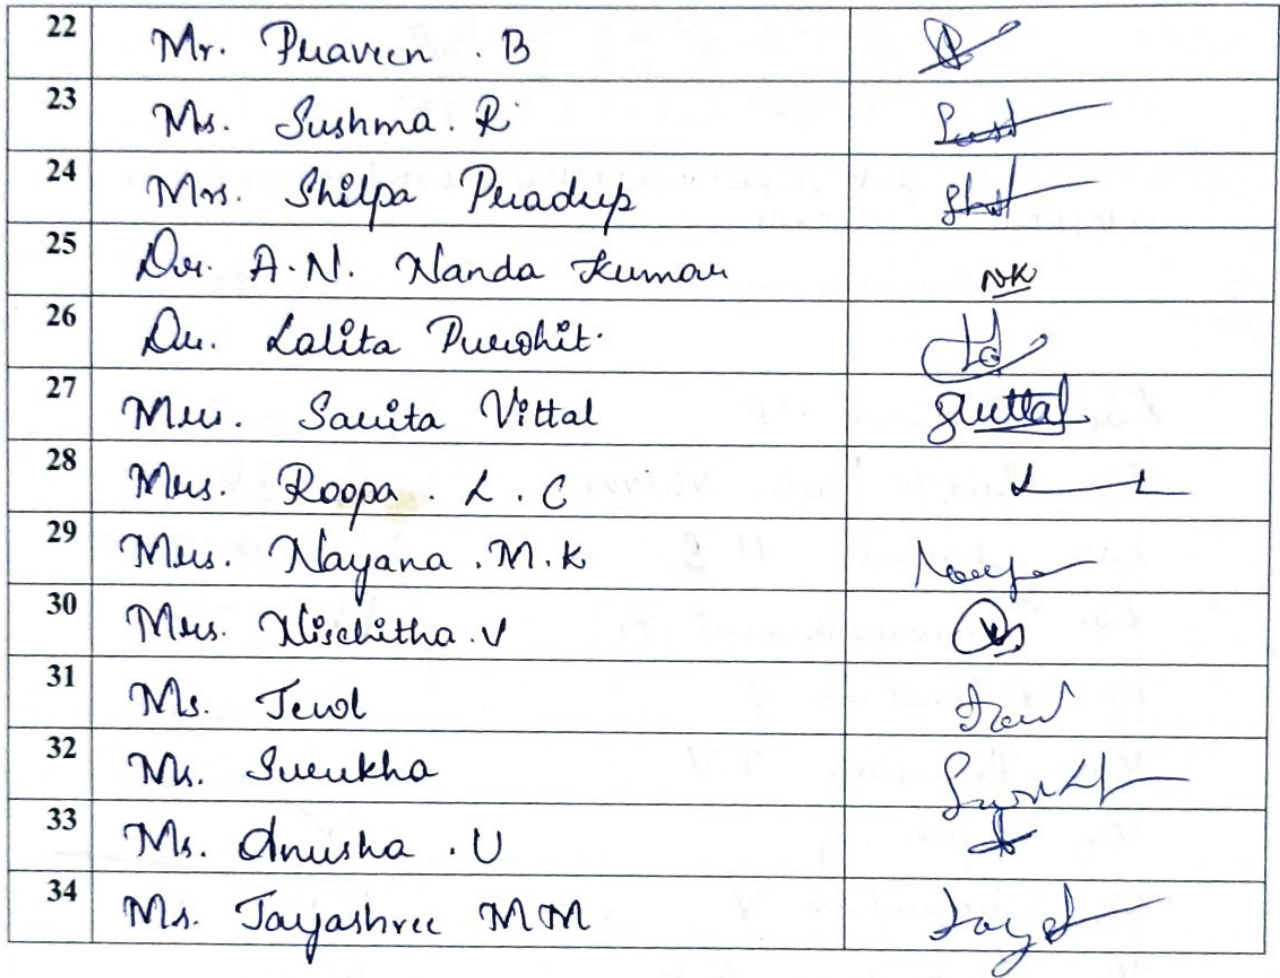 22 Mr. Praveen . B
23 Ms. Sushma . R
24 Mrs. Shilpa Pradeep
25 Dr. A. N. Nanda Kumar NK
26 Dr. Lalita Purohit.
27 Mrs. Savita Vittal SVittal
28 Mrs. Roopa . L . C
29 Mrs. Nayana . M. K
30 Mrs. Nischitha . V
31 Ms. Jewel
32 Ms. Surekha
33 Ms. Anusha . U
34 Ms. Jayashree M M